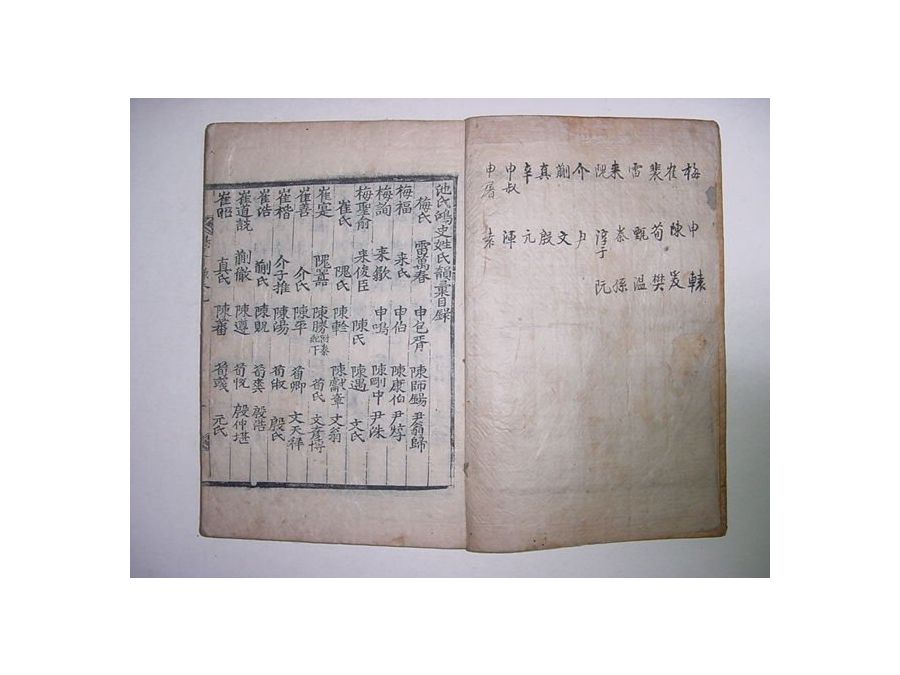 梅 申 轅
崔 陳 爰
裴 荀 樊
雷 甄 溫
来 秦 孫
隗 淳于 阮
介 尹
蒯 文
真 殷
辛 元
申叔 渾
申屠 袁
池氏鴻史姓氏韻彙目錄
梅氏 雷萬春 申包胥 陳師錫 尹翁歸
梅福 来氏 申伯 陳康伯 尹焞
梅詢 来歙 申鳴 陳剛中 尹洙
梅聖俞 来俊臣 陳氏 陳遇 文氏
崔氏 隗氏 陳軫 陳獻章 文翁
崔寔 隗囂 陳勝附秦紀下 荀氏 文彦博
崔善 介氏 陳平 荀卿 文天祥
崔楷 介子推 陳湯 荀淑 殷氏
崔浩 蒯氏 陳貺 荀爽 殷浩
崔道 蒯徹 陳遵 荀悅 殷仲堪
真氏 陳蕃 荀彧 元氏